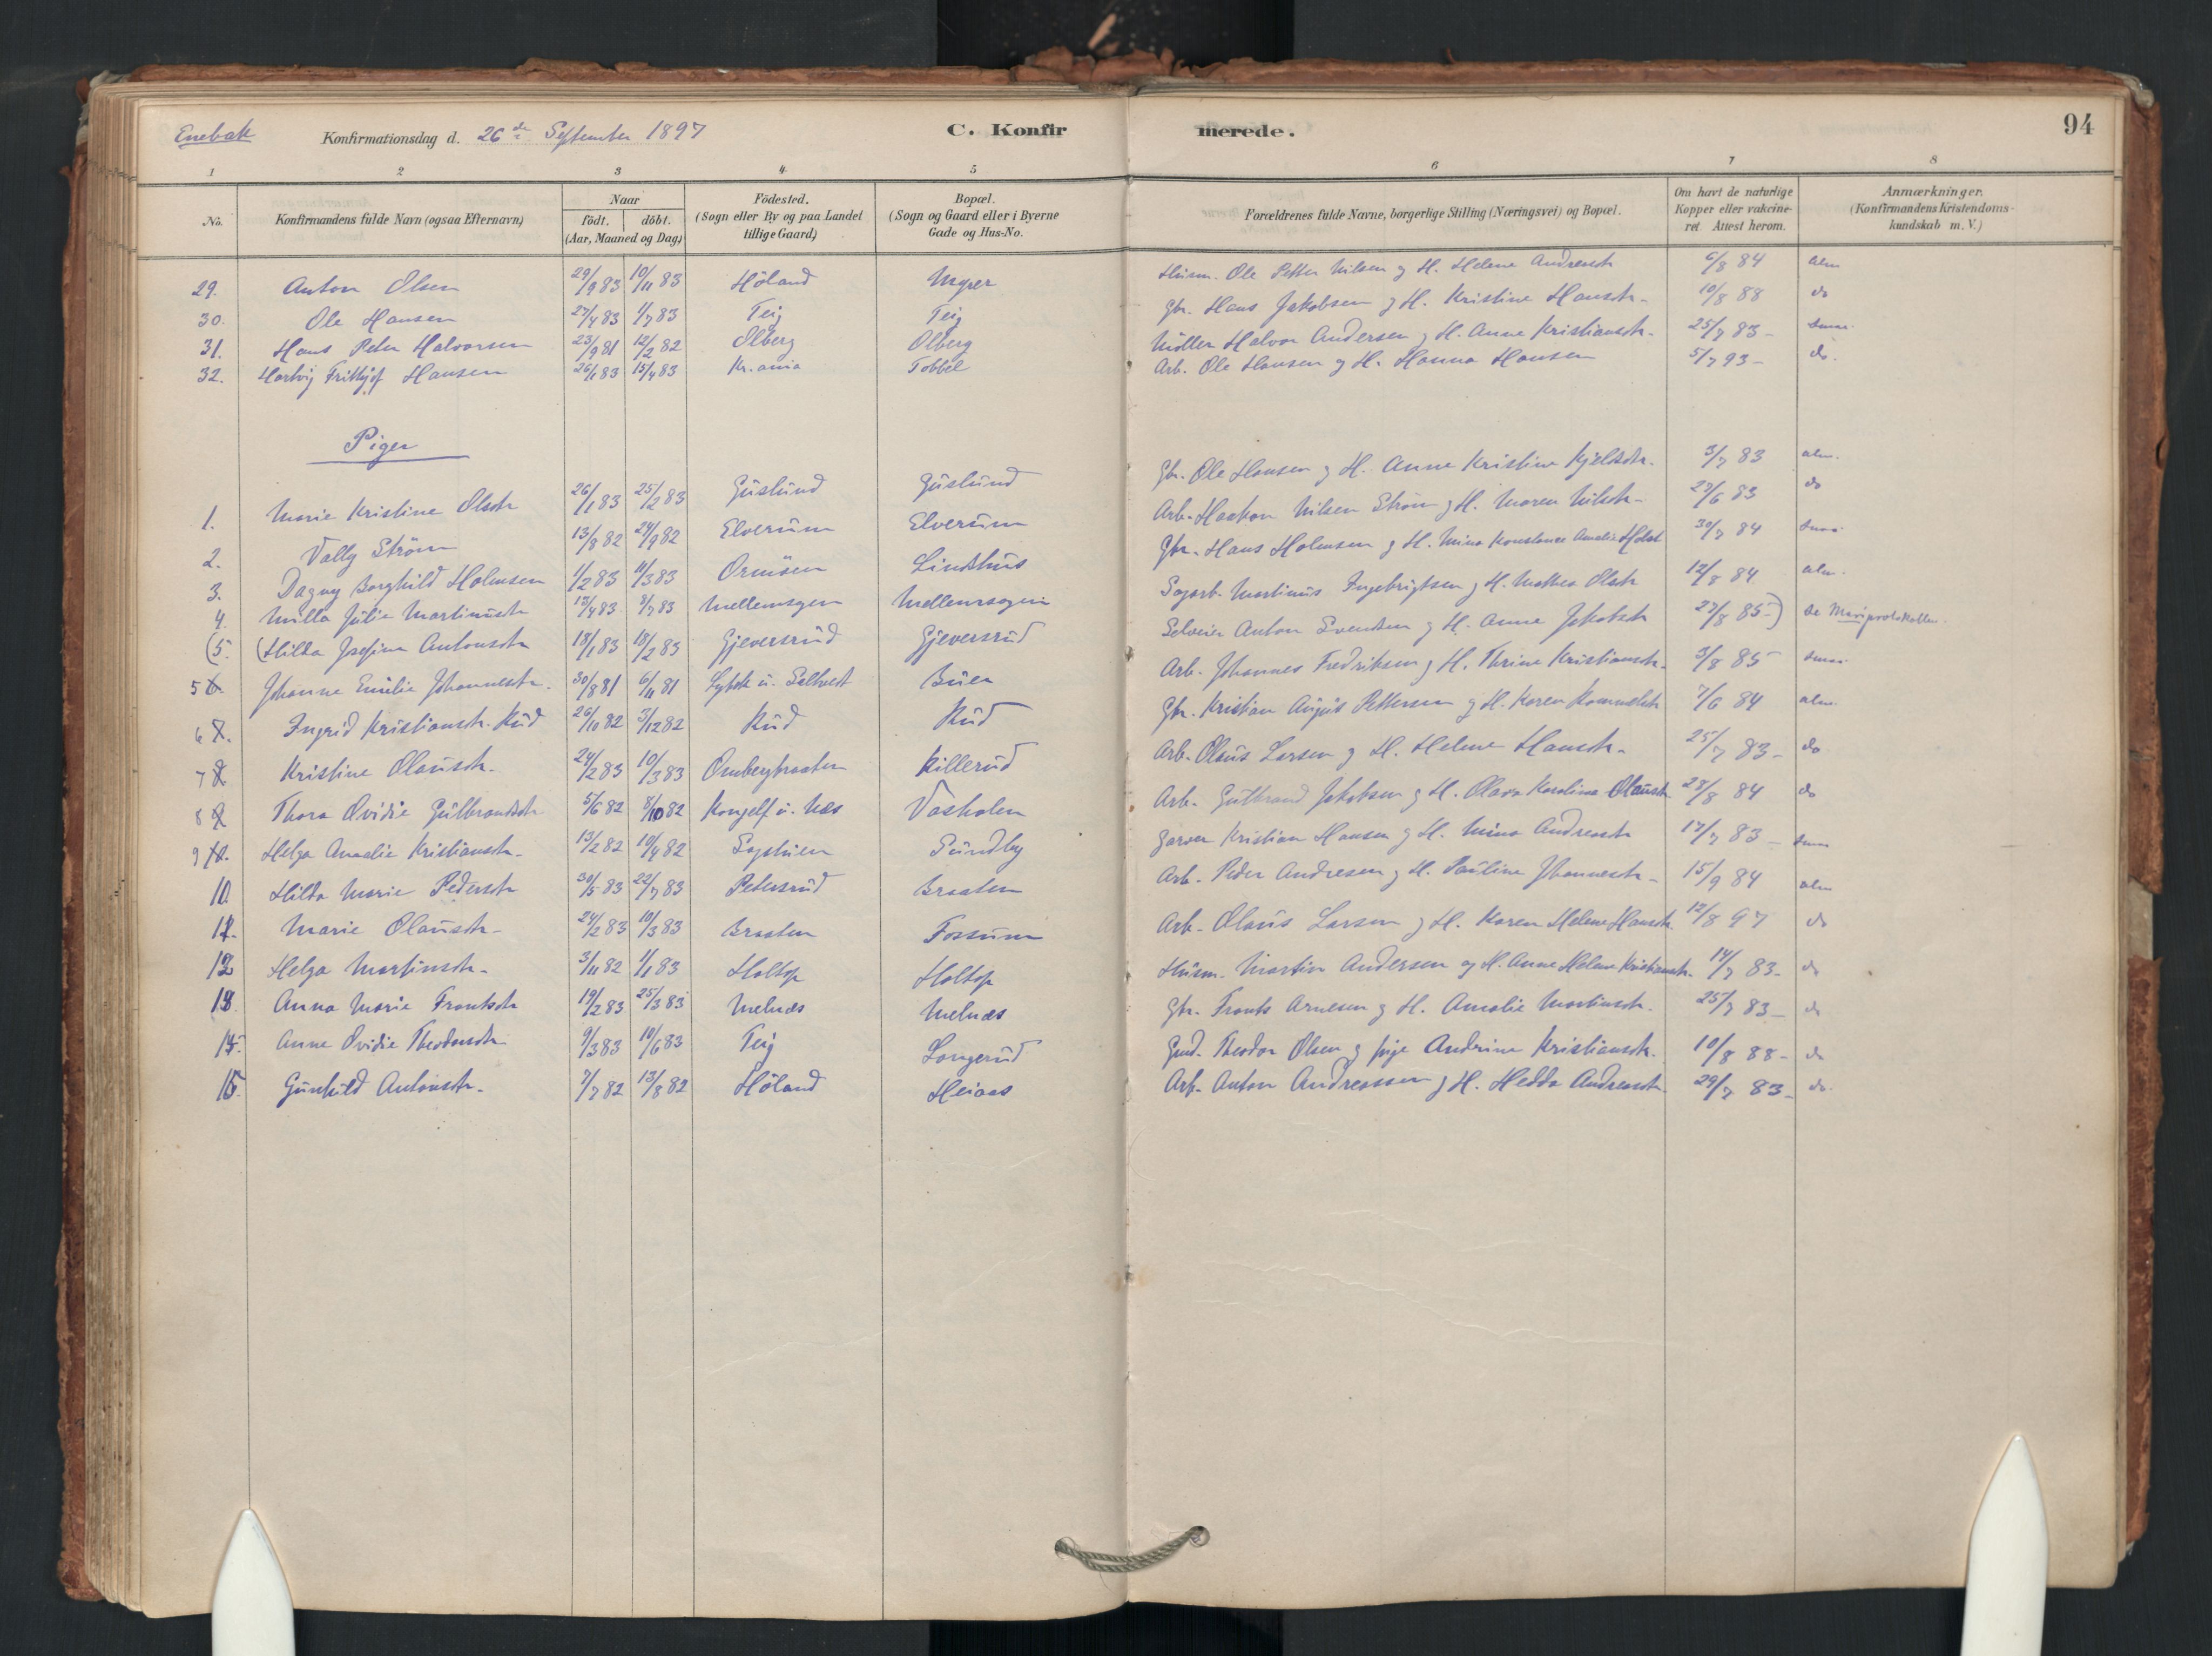 Enebak Konfirmationsdag d. 26de September 1897 C. Konfirmerede. 94
1 2 3 4 5 6 7 8
No. Konfirmandens fulde Navn (ogsaa Efternavn) Naar födt. döbt. (Aar, Maaned og Dag) Födested. (Sogn eller By og paa Landet tillige Gaard) Bopæl. (Sogn og Gaard eller i Byerne Gade og Hus-No. Forældrenes fulde Navne, borgerlige Stilling (Næringsvei) og Bopæl. Om havt de naturlige Kopper eller vakcineret. Attest herom. Anmærkninger. (Konfirmandens Kristendomskundskab m. V.)
29. Anton Olsen 29/9 83 10/11 83 Höland Myrer Husm. Ole Petter Nilsen og H. Helene Andreasdtr 6/8 84 alm
30. Ole Hansen 27/4 83 1/7 83 Teig Teig Gbr. Hans Jakobsen og H. Kristine Hansdtr. 10/8 88 do
31. Hans Peter Halvorsen 23/9 81 12/2 82 Ölberg Ölberg Möller Halvor Andersen og H. Anne Kristiansdtr. 25/7 83-
32. Hartvig Frithjof Hansen 26/1 83 15/4 83 Kr.ania Tobbel Arb. Ole Hansen og H. Hanna Hansen 5/7 93- do.
Piger
1. Marie Kristine Olsdtr 26/1 83 25/2 83 Guslund Guslund Gbr. Ole Hansen og H. Anne Kristine Kjeldsdtr. 3/7 83 alm.
2. Vally Ström 13/8 82 24/9 82 Elverum Elverum Arb. Haakon Nilsen Ström og H. Maren Nilsdtr. 23/6 83 do
3. Dagny Borghild Holmsen 1/2 83 11/3 83 Lindshus Gbr. Hans Holmsen og H. Mina Konstance Amalie Holst 30/7 84
4. Milla Julie Martinusdtr 13/4 83 8/7 83 Mellemsogen Mellemsogen Sagarb. Martinus Ingebrigtsen og H. Mathea Olsdtr 12/8 84 alm.
(5. (Hilda Josefine Antonsdtr 18/1 83 18/2 83 Gjeversrud Gjeversrud Selveier Anton Svendsen og H. Anne Jakobsdtr 27/8 85-) Se Mariprotokollen.
5 6. Johanne Emilie Johannesdtr. 30/8 81 6/11 81 Buer Arb. Johannes Fredriksen og H. Thrine Kristiansdtr. 3/8 85
6 7. Ingrid Kristiansdtr. Rud 26/10 82 3/12 82 Rud Rud Gbr. Kristian August Pettersen og H. Karen 7/6 84 alm.
7 8 Kristine Olausdtr. 24/2 83 10/3 83 Ombergbraaten Killerud Arb. Olaus Larsen og H. Helene Hansdtr. 25/7 83- do
8 9 Thora Ovidie Gulbrandsdtr 5/6 82 8/10 82 Kongelf u. Næs Vasholen Arb. Gulbrand Jakobsen og H. Olava Karoline Olausdtr. 28/8 84 do
9 10. Helga Amalie Kristiansdtr. 13/2 82 10/4 82 Sagstuen Sundby Garver Kristian Hansen og H. Mina Andreasdtr 17/7 83-
10. Hilda Marie Pedersdtr 30/5 83 22/7 83 Petersrud Braaten Arb. Peder Andresen og H. Pauline Johannesdtr. 15/9 84 alm
11. Marie Olausdtr. 24/2 83 10/3 83 Braaten Fossum Arb. Olaus Larsen og H. Karen Helene Hansdtr. 12/8 97 do
12 Helga Martinsdtr. 3/11 82 1/1 83 Holtop Holtop Husm. Martin Andersen og H. Anne Helene Kristiansdtr. 14/7 83- do
13. Anna Marie Frantsdtr 19/2 83 25/3 83 Melnæs Melnæs Gbr. Frants Arnesen og H. Amalie Martinsdtr. 25/7 83- do
14. Anne Ovidie Theodorsdtr 9/3 83 10/6 83 Teig Langerud Gmd. Theodor Olsen og pige Andrine Kristiansdtr. 10/8 88- do
15. Gunhild Antonsdtr. 7/7 82 13/8 82 Höland Heiaas Arb. Anton Andreassen og H. Hedda Andreasdtr. 29/7 83- do.